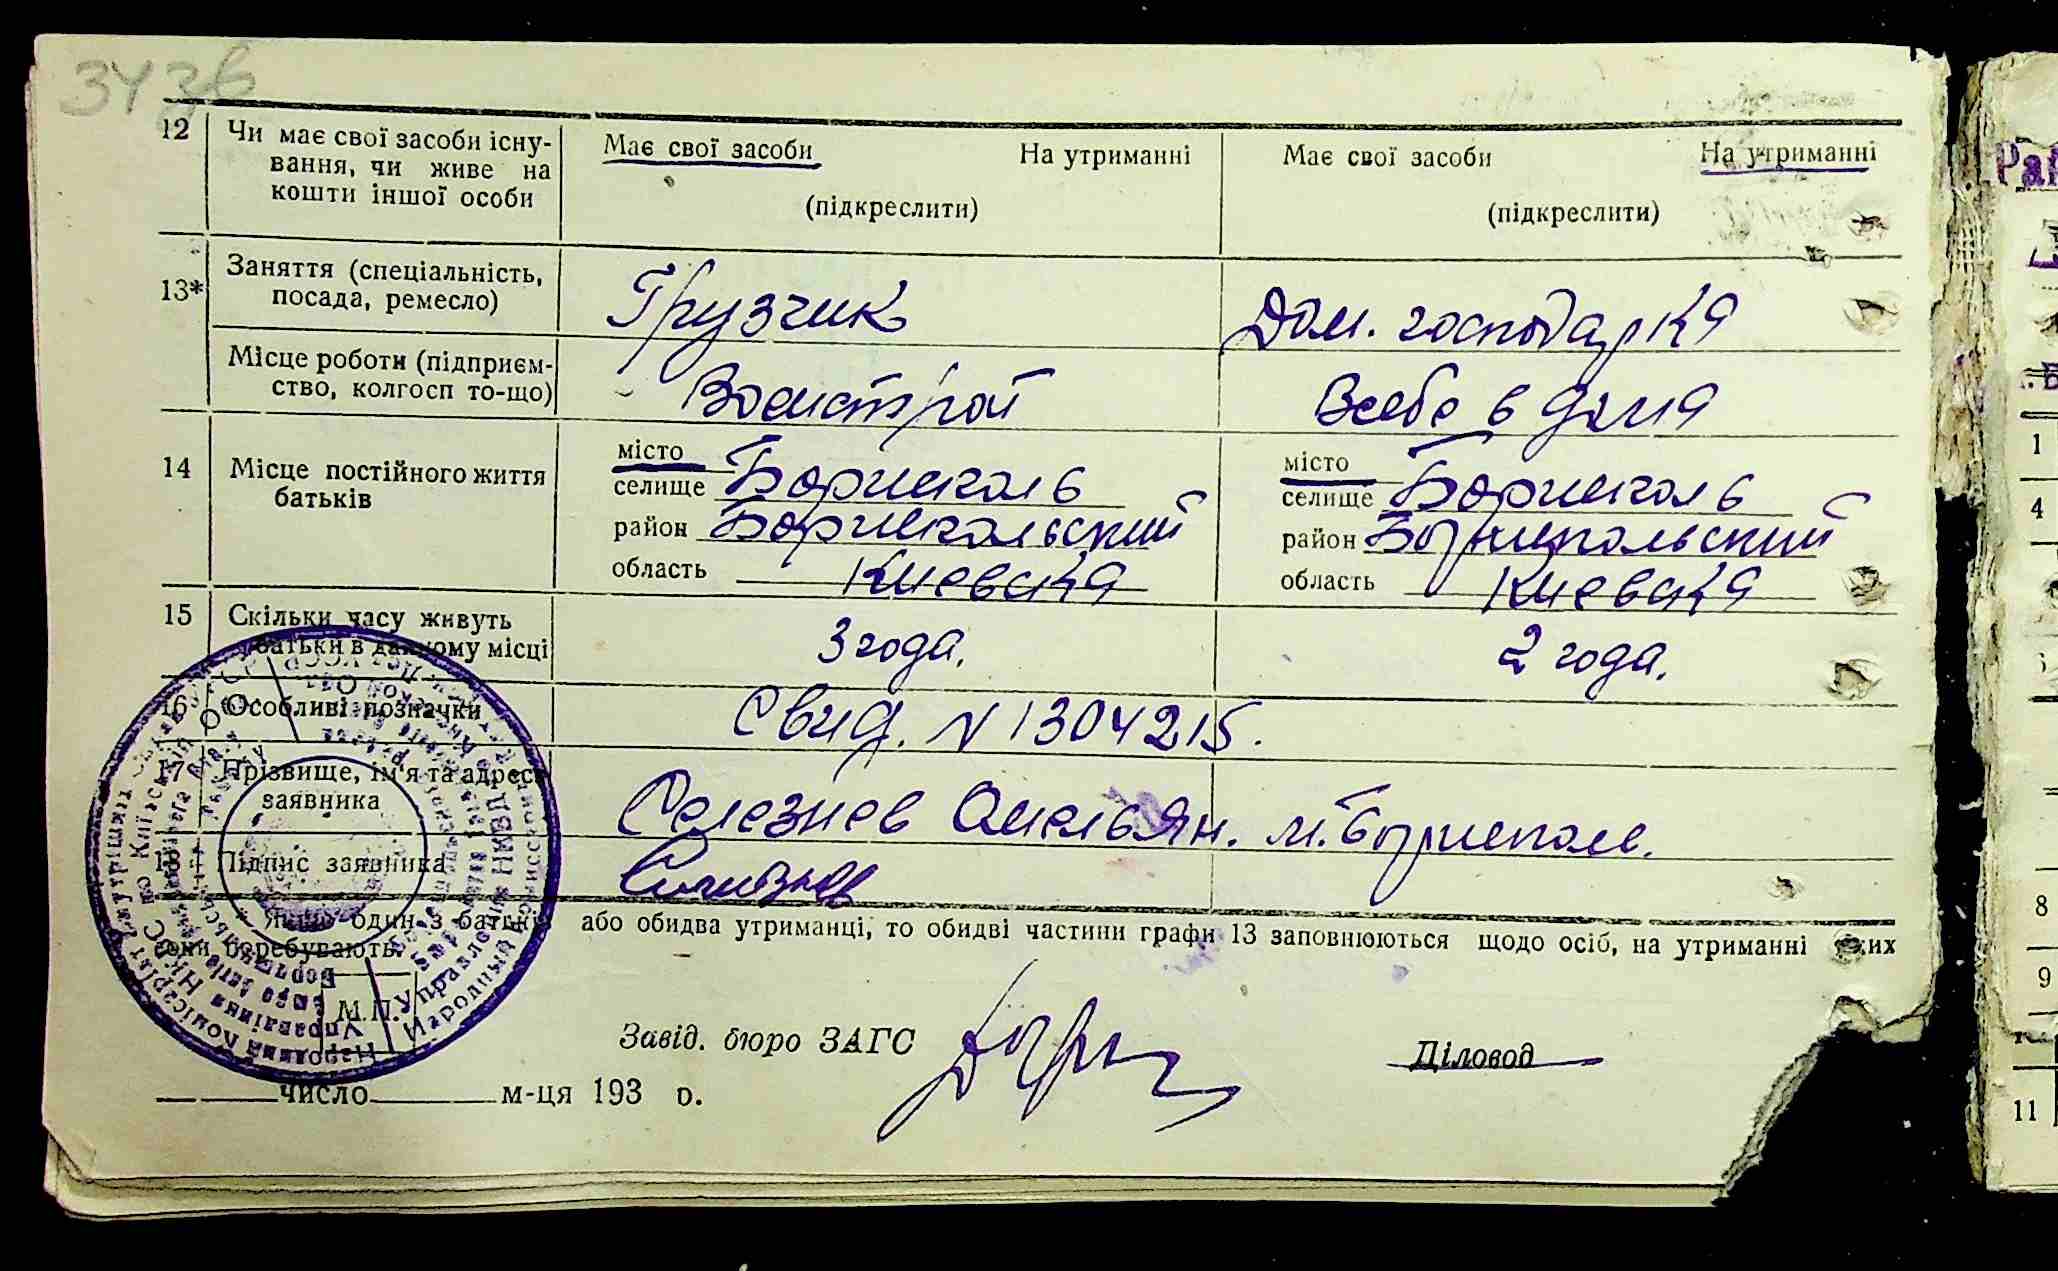 343б
12 Чи має свої засоби існу- Має свої засоби На утриманні Має свої засоби На утриманні
вання, чи живе на
кошти іншої особи (підкреслити) (підкреслити)
13* Заняття (спеціальність,
посада, ремесло) Грузчик Дом. господарка
Місце роботи (підприєм-
ство, колгосп то-що) Военстрой В себе в дома
14 Місце постійного життя
батьків
місто місто
селище Бориспколь селище Бориспколь
район Бориспольский район Бориспольский
область Киевская область Киевская
15 Скільки часу живуть
батьки в даному місці 3 года. 2 года.
16 Особливі позначки Свид. N 1304215.
17 Прізвище, ім'я та адреса
заявника Селезнев Омельян. м. Борисполь.
18 Підпис заявника
* Якщо один з батьків або обидва утриманці, то обидві частини графи 13 заповнюються щодо осіб, на утриманні яких
вони перебувають.
М.П.
Завід. бюро ЗАГС Діловод
число м-ця 193 р.
1
4
8
9
11